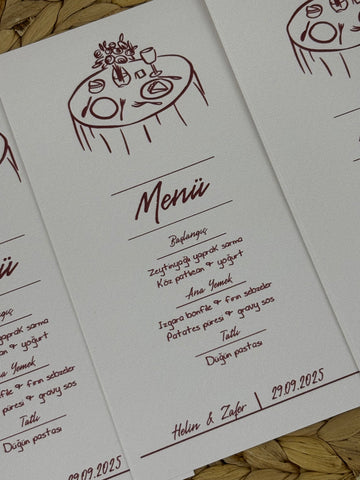 Menü
Başlangıç
Zeytinyağlı yaprak sarma
Köz patlıcan & yoğurt
Ana Yemek
Izgara bonfile & fırın sebzeler
Patates püresi & gravy sos
Tatlı
Düğün pastası
Helin & Zafer | 29.09.2025
ü
gıç
aprak sarma
n & yoğurt
Yemek
e & fırın sebzeler
püresi & gravy sos
Tatlı
Düğün pastası
29.09.2025